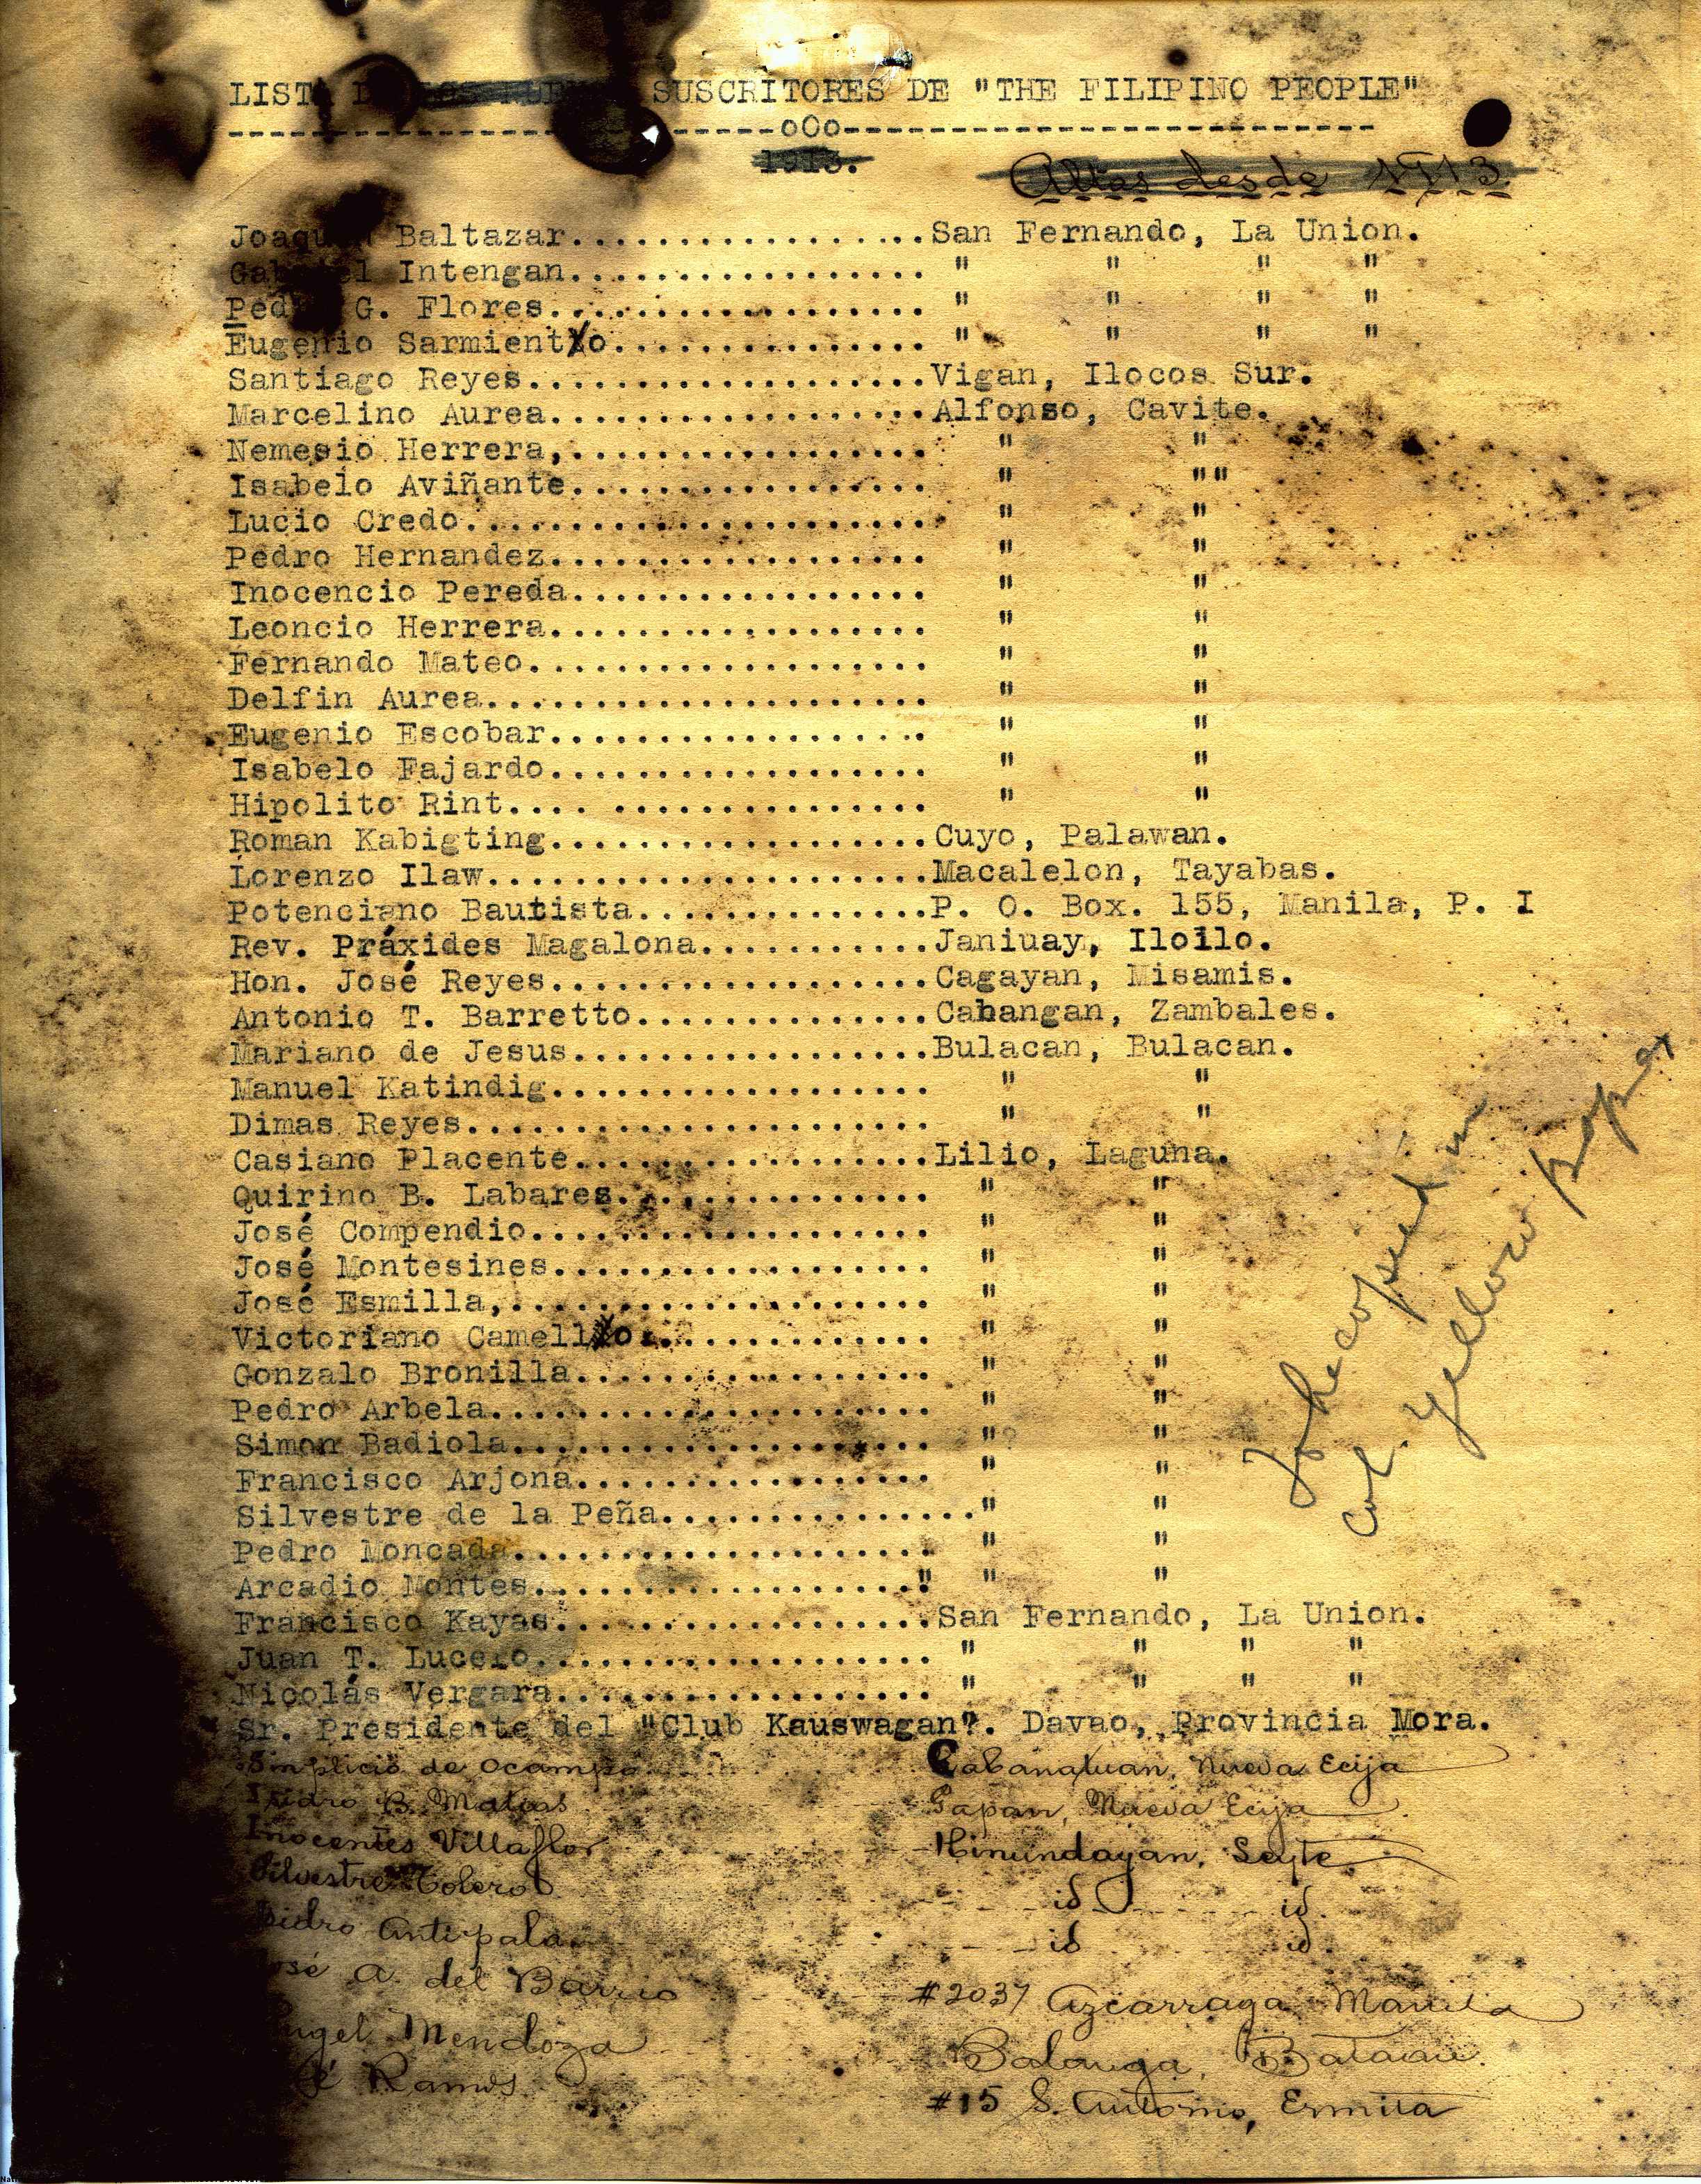 LISTA DE LOS SUSCRITORES DE "THE FILIPINO PEOPLE"
---------------------------oOo---------------------------
1913.
Altas desde 1913
Joaquin Baltazar.................San Fernando, La Union.
Gabriel Intengan................. " " " "
Pedro G. Flores.................. " " " "
Eugenio Sarmiento............... " " " "
Santiago Reyes...................Vigan, Ilocos Sur.
Marcelino Aurea..................Alfonso, Cavite.
Nemesio Herrera,................. " "
Isabelo Aviñante................. " " "
Lucio Credo...................... " "
Pedro Hernandez.................. " "
Inocencio Pereda................. " "
Leoncio Herrera.................. " "
Fernando Mateo................... " "
Delfin Aurea..................... " "
Eugenio Escobar.................. " "
Isabelo Fajardo.................. " "
Hipolito Rint.... ............... " "
Roman Kabigting..................Cuyo, Palawan.
Lorenzo Ilaw.....................Macalelon, Tayabas.
Potenciano Bautista..............P. O. Box. 155, Manila, P. I
Rev. Práxides Magalona...........Janiuay, Iloilo.
Hon. José Reyes..................Cagayan, Misamis.
Antonio T. Barretto..............Cabangan, Zambales.
Mariano de Jesus.................Bulacan, Bulacan.
Manuel Katindig.................. " "
Dimas Reyes...................... " "
Casiano Placente.................Lilio, Laguna.
Quirino B. Labares............... " "
José Compendio................... " "
José Montesines.................. " "
José Esmilla,.................... " "
Victoriano Camello.............. " "
Gonzalo Bronilla................. " "
Pedro Arbela..................... " "
Simon Badiola.................... " "
Francisco Arjona................. " "
Silvestre de la Peña..............." "
Pedro Moncada.................... " "
Arcadio Montes..................." " "
Francisco Kayas..................San Fernando, La Union.
Juan T. Lucero................... " " " "
Nicolás Vergara.................. " " " "
Sr. Presidente del "Club Kauswagan?. Davao, Provincia Mora.
Simplicio de Ocampo Cabanatuan, Nueva Ecija
Isidro B. Matias Gapan, Nueva Ecija
Inocentes Villaflor Hinundayan, Leyte
Silvestre Tolero id id.
Isidro Antipala id id.
José A. del Barrio #2037 Azcarraga Manila
Angel Mendoza Balanga, Bataan.
José Ramos #15 S. Antonio, Ermita
To be copied in
yellow paper